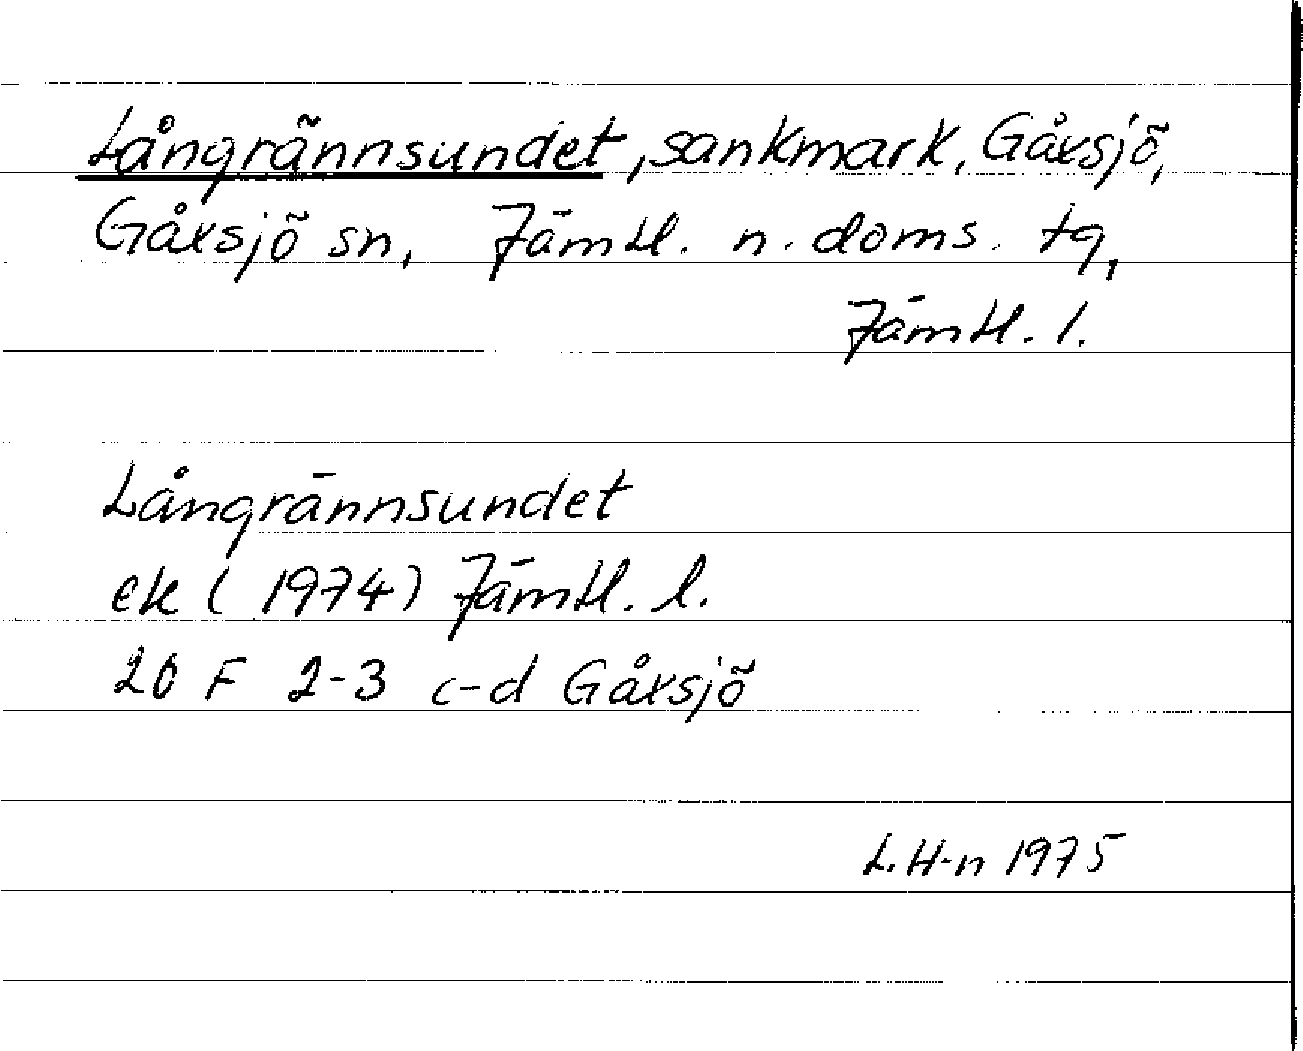 Långrännsundet, sankmark, Gåxsjö,
Gåxsjö sn, Jämtl. n. doms. tg,
Jämtl. l.
Långrännsundet
ek (1974) Jämtl. l.
20 F 2-3 c-d Gåxsjö
L. H-n 1975